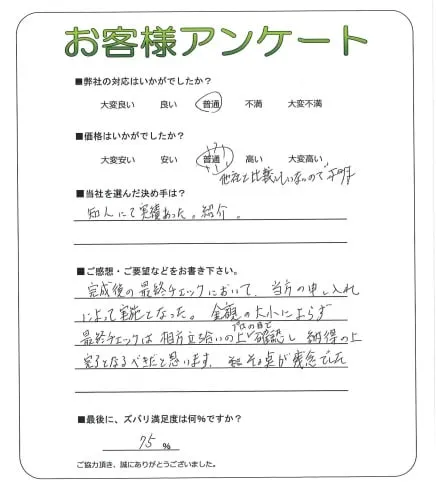 お客様アンケート
■弊社の対応はいかがでしたか?
大変良い 良い 普通 不満 大変不満
■価格はいかがでしたか?
大変安い 安い 普通 高い 大変高い
他社と比較していないので不明
■当社を選んだ決め手は?
知人にて実績あった。紹介。
■ご感想・ご要望などをお書き下さい。
完成後の最終チェックにおいて、当方の申し入れ
によって実施となった。金額の大小によらず
プロの目で
最終チェックは相方立ち会いの上で確認し納得の上
完了となるべきだと思います。その点が残念でした
■最後に、ズバリ満足度は何%ですか?
75 %
ご協力頂き、誠にありがとうございました。